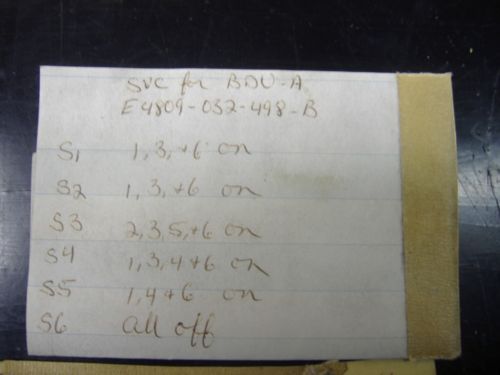 SVC for BDU-A
E4809-032-498-B
S1 1, 3, +6 on
S2 1, 3, +6 on
S3 2, 3, 5, +6 on
S4 1, 3, 4 +6 on
S5 1, 4 +6 on
S6 all off